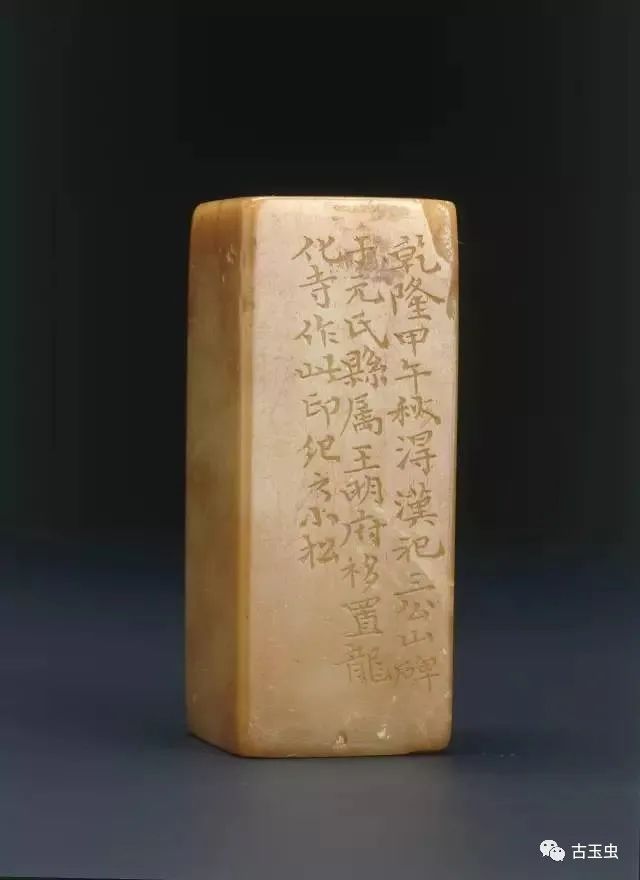 乾隆甲午秋淂漢祀三公山碑
于元氏縣属王明府移置龍
化寺作此印紀之小松
古玉虫